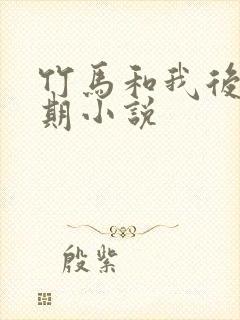 竹馬和我後
期小說
殷紫